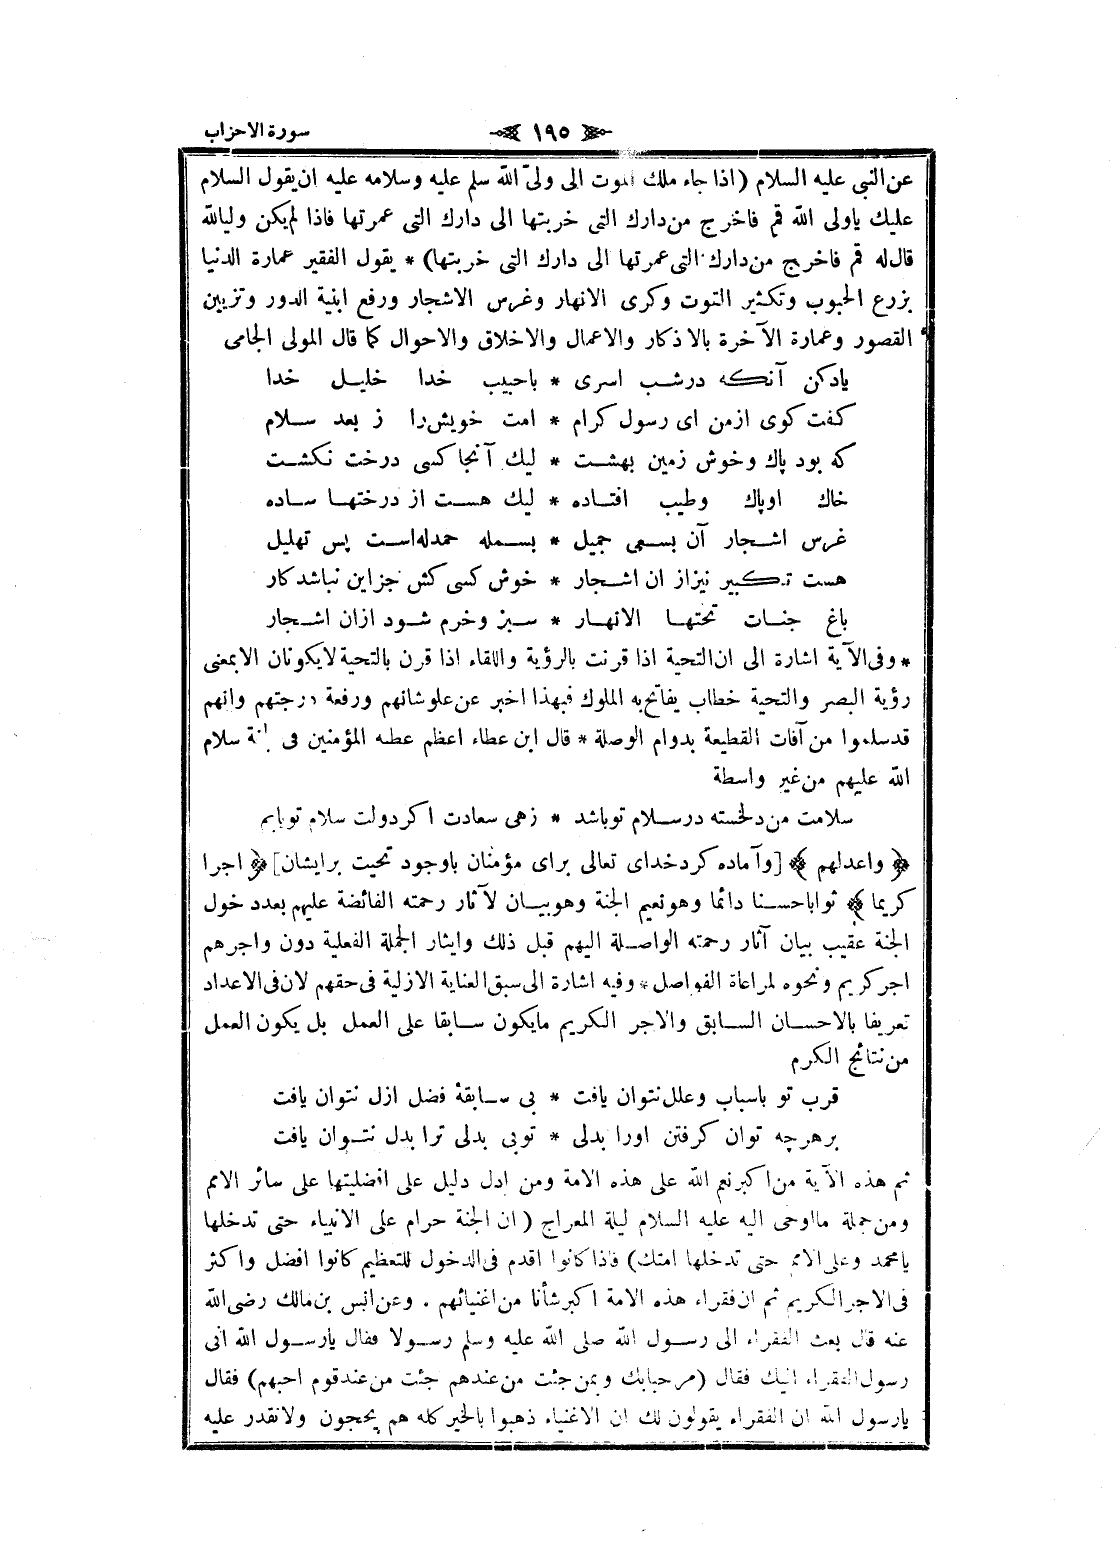 سورة الاحزاب
١٩٥
عن النبى عليه السلام (اذا جاء ملك الموت الى ولىّ الله سلم عليه وسلامه عليه ان يقول السلام
عليك ياولى الله قم فاخرج من دارك التى خربتها الى دارك التى عمرتها فاذا لم يكن وليالله
قال له قم فاخرج من دارك التى عمرتها الى دارك التى خربتها) * يقول الفقير عمارة الدنيا
بزرع الحبوب وتكثير التوت وكرى الانهار وغرس الاشجار ورفع ابنية الدور وتزيين
القصور وعمارة الآخرة بالاذكار والاعمال والاخلاق والاحوال كما قال المولى الجامى
يادكن آنكه درشب اسرى * باحبيب خدا خليل خدا
كفت كوى ازمن اى رسول كرام * امت خويش را ز بعد سلام
كه بود پاك وخوش زمين بهشت * ليك آنجا كسى درخت نكشت
خاك اوپاك وطيب افتاده * ليك هست از درختها ساده
غرس اشجار آن بسعى جميل * بسمله حمدله است پس تهليل
هست تكبير نيزاز ان اشجار * خوش كسى كش جزاين نباشد كار
باغ جنات تحتها الانهار * سبز وخرم شود ازان اشجار
* وفى الآية اشارة الى ان التحية اذا قرنت بالرؤية واللقاء اذا قرن بالتحية لايكونان الابمعنى
رؤية البصر والتحية خطاب يفاتح به الملوك فبهذا اخبر عن علوشانهم ورفعة درجتهم وانهم
قدسلموا من آفات القطيعة بدوام الوصلة * قال ابن عطاء اعظم عطه المؤمنين فى سلام
الله عليهم من غير واسطة
سلامت من دلخسته درسلام توباشد * زهى سعادت اكر دولت سلام تويابم
﴿ واعدلهم ﴾ [وآماده كرد خداى تعالى براى مؤمنان باوجود تحيت برايشان] ﴿ اجرا
كريما ﴾ ثوابا حسنا دائما وهونعيم الجنة وهوبيان لآثار رحمته الفائضة عليهم بعدد خول
الجنة عقيب بيان آثار رحمته الواصلة اليهم قبل ذلك وايثار الجملة الفعلية دون واجرهم
اجر كريم ونحوه لمراعاة الفواصل * وفيه اشارة الى سبق العناية الازلية فى حقهم لان فى الاعداد
تعريفا بالاحسان السابق والاجر الكريم مايكون سابقا على العمل بل يكون العمل
من نتائج الكرم
قرب تو باسباب وعلل نتوان يافت * بى سابقۀ فضل ازل نتوان يافت
برهرچه توان كرفتن اورا بدلى * توبى بدلى ترا بدل نتوان يافت
ثم هذه الآية من اكبر نعم الله على هذه الامة ومن ادل دليل على افضليتها على سائر الامم
ومن جملة مااوحى اليه عليه السلام ليلة المعراج ( ان الجنة حرام على الانبياء حتى تدخلها
يامحمد وعلى الامم حتى تدخلها امتك) فاذا كانوا اقدم فى الدخول للتعظيم كانوا افضل واكثر
فى الاجر الكريم ثم ان فقراء هذه الامة اكبر شأنا من اغنيائهم . وعن انس بن مالك رضى الله
عنه قال بعث الفقراء الى رسول الله صلى الله عليه وسلم رسولا فقال يارسول الله انى
رسول الفقراء اليك فقال (مرحبابك وبمن جئت من عندهم جئت من عند قوم احبهم) فقال
يارسول الله ان الفقراء يقولون لك ان الاغنياء ذهبوا بالخير كله هم يحجون ولانقدر عليه